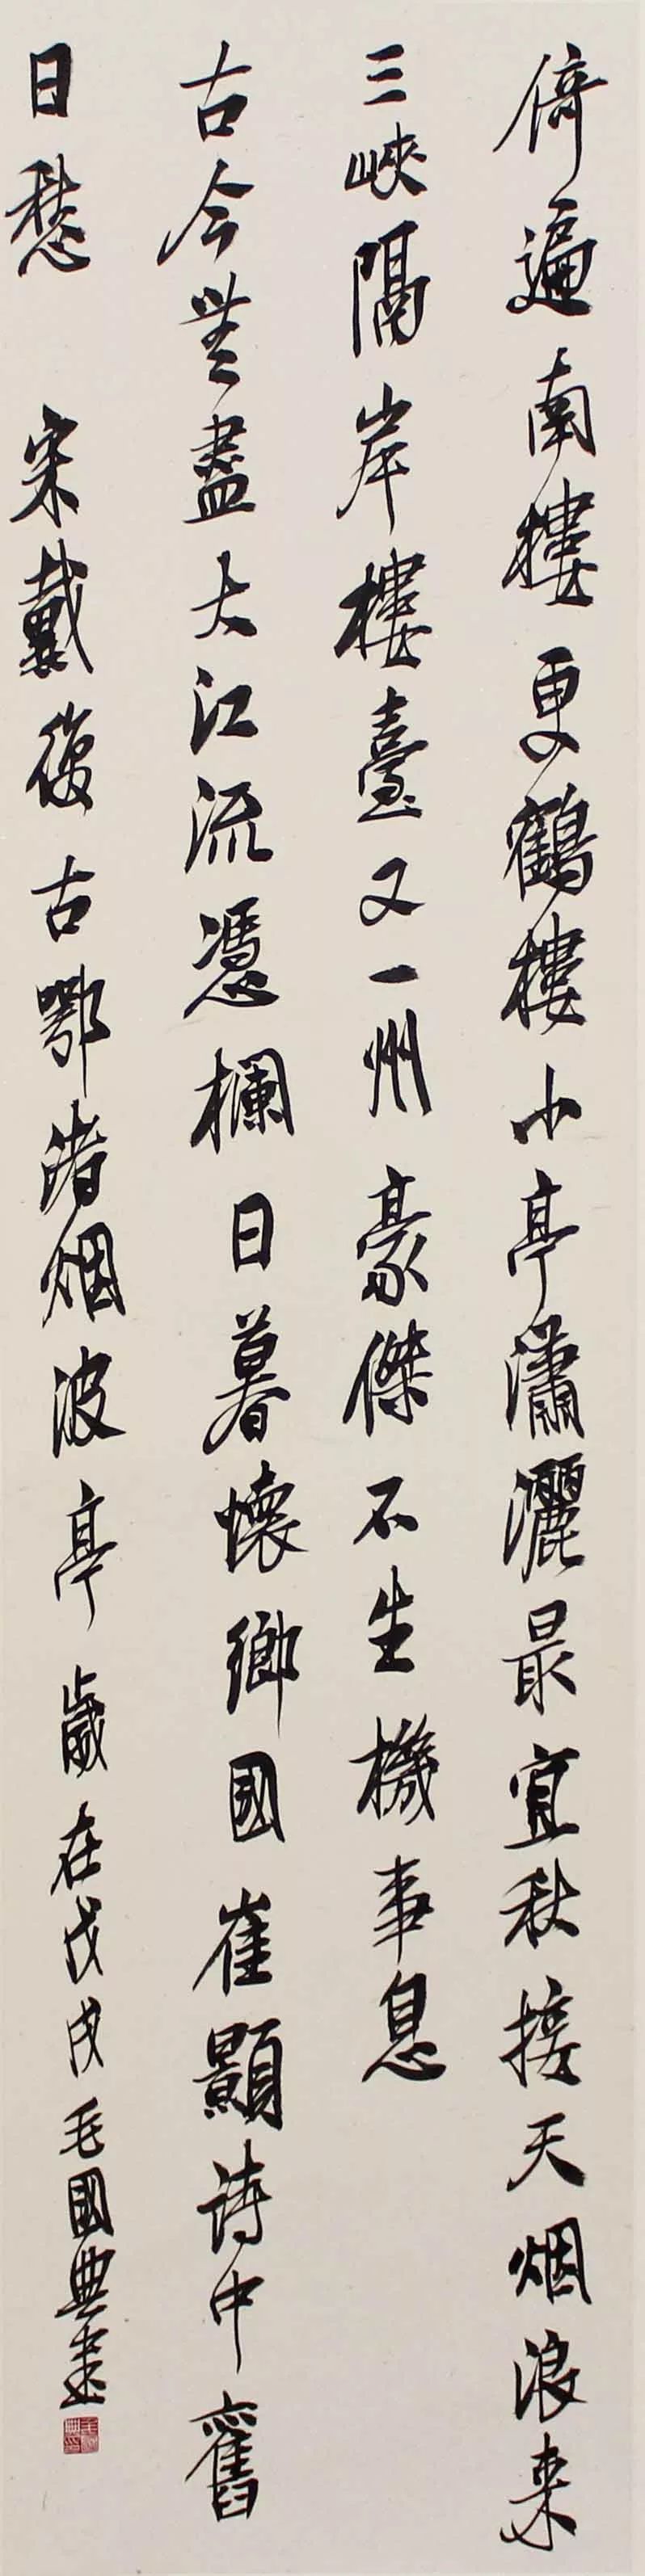 倚遍南樓更鶴樓小亭瀟灑最宜秋接天烟浪来
三峽隔岸樓臺又一州豪傑不生機事息
古今無盡大江流憑欄日暮懷鄉國崔顥詩中舊
日愁 宋戴復古鄂渚烟波亭歲在戊戌毛國典書